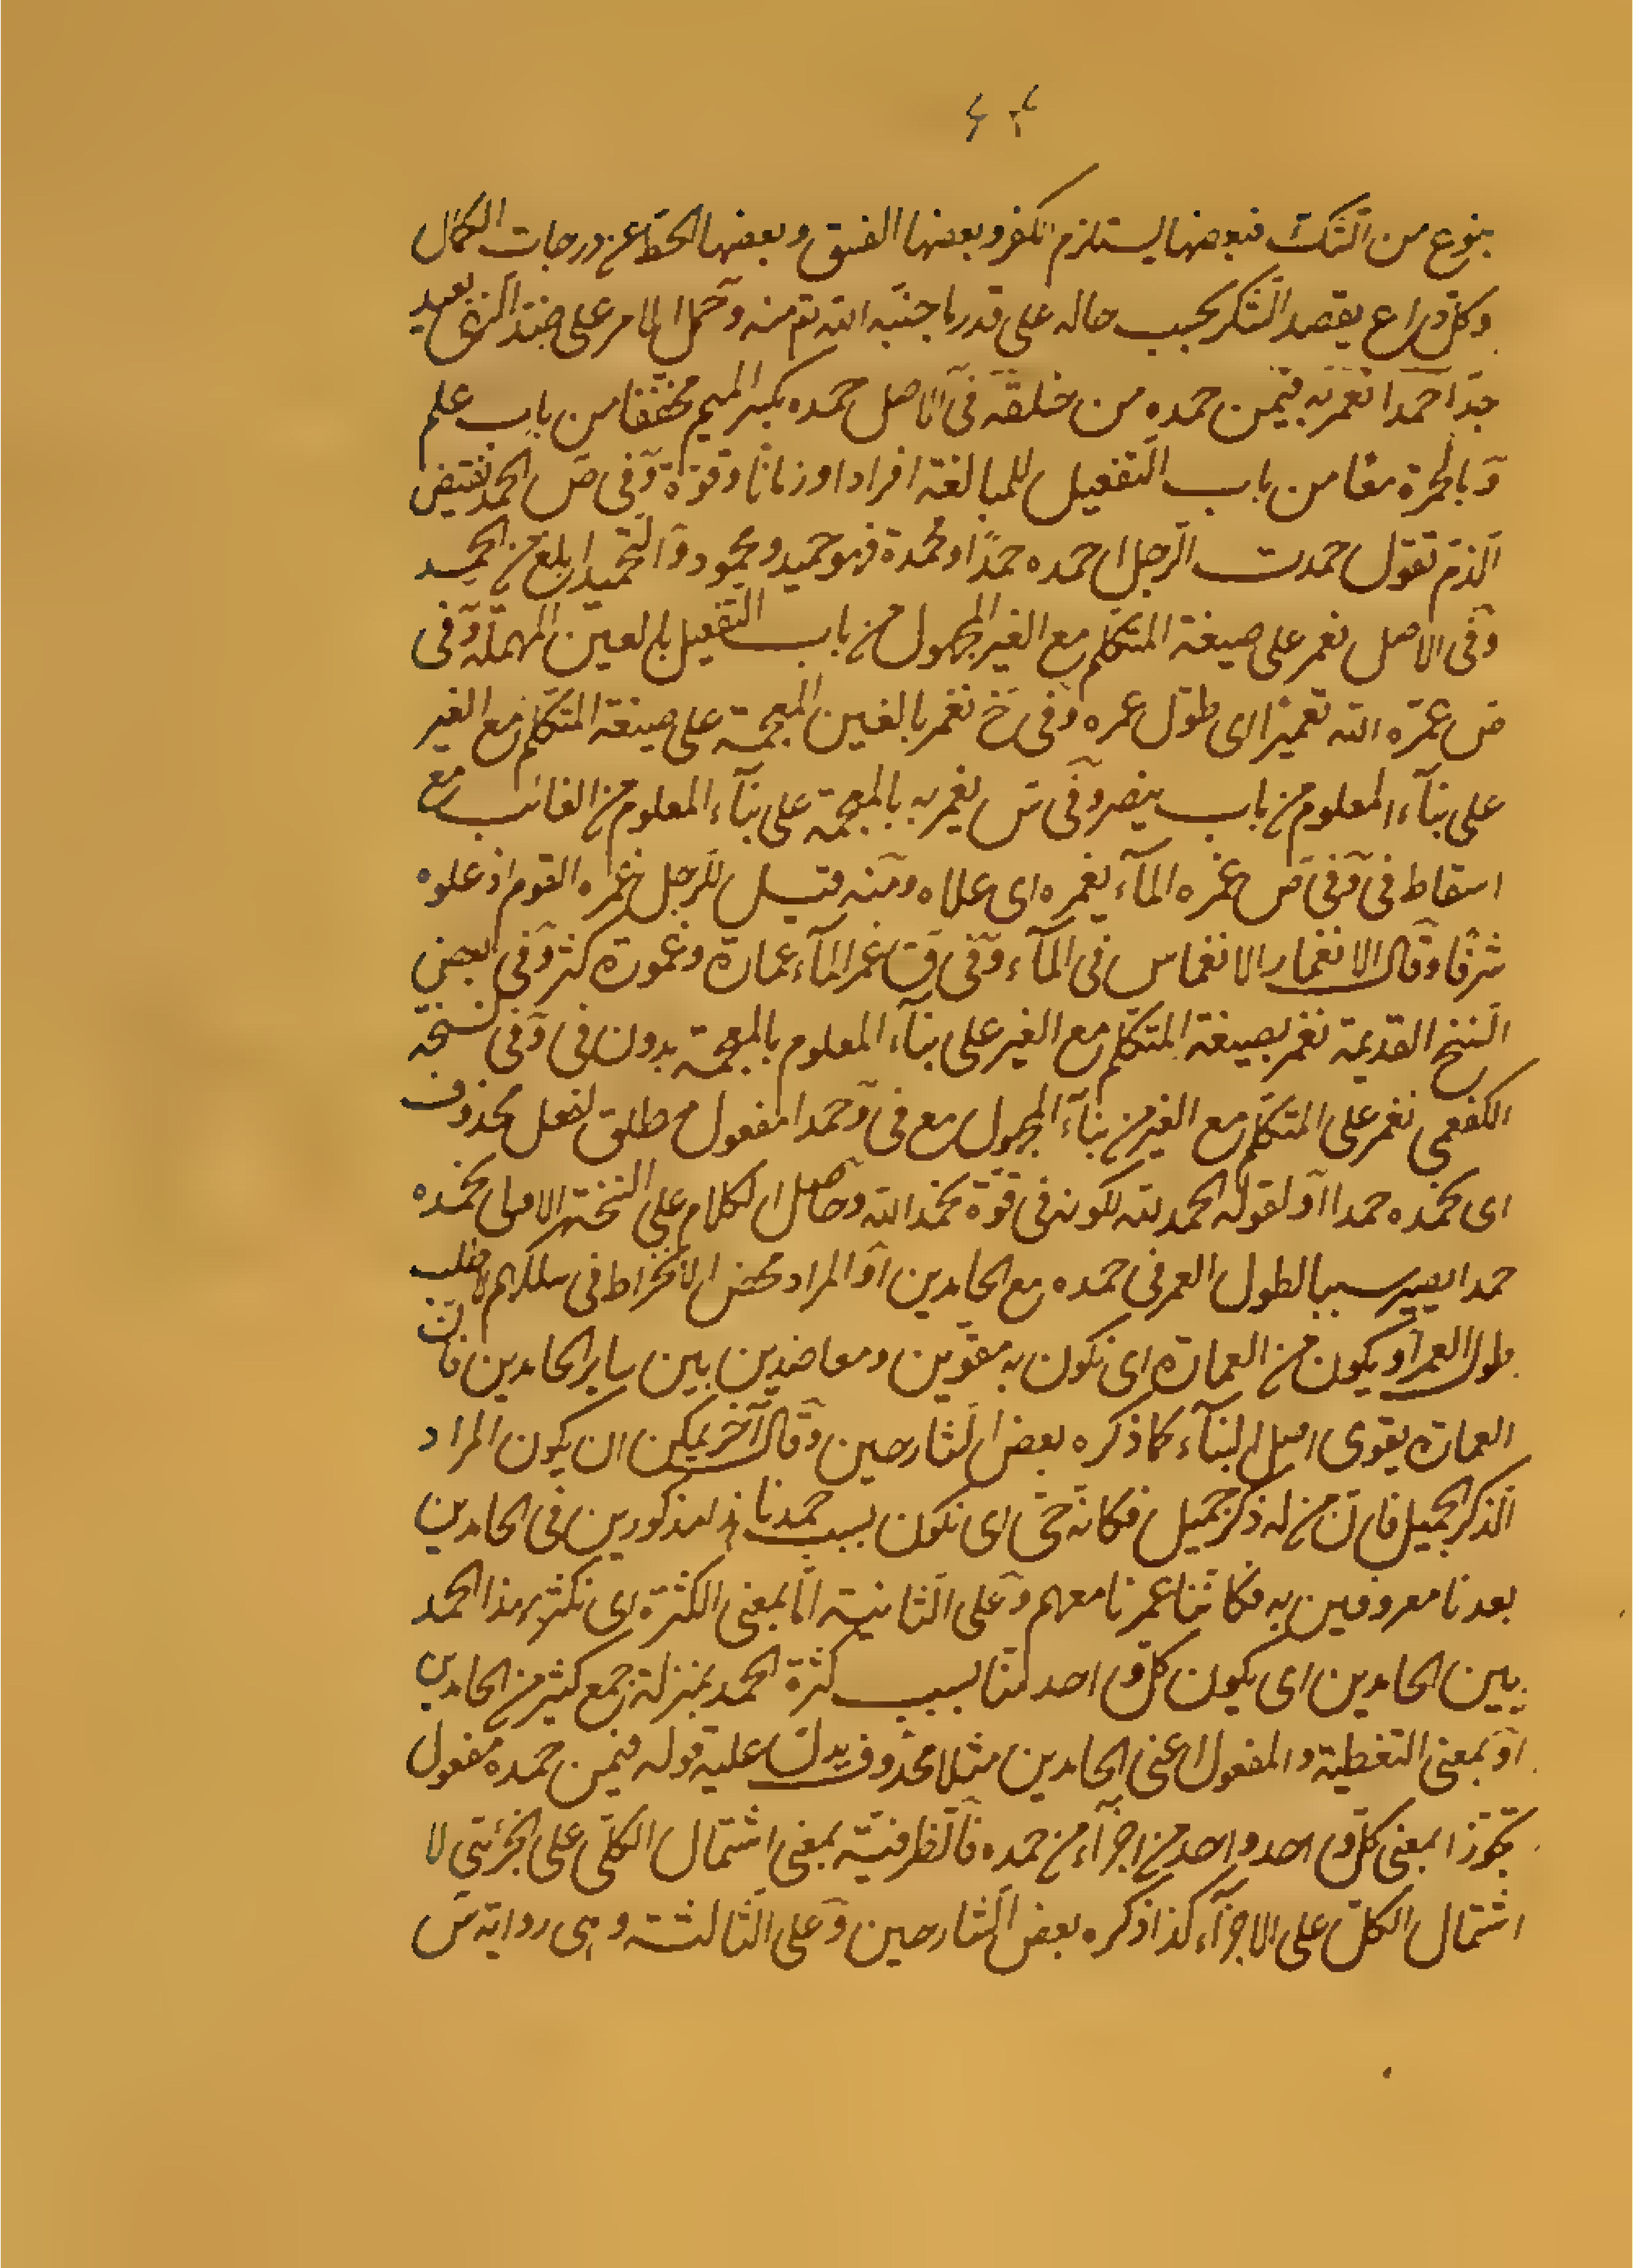 بنوع من الشك فبعضها يستلزم الكفر وبعضها الفسق وبعضها الحط عن درجات الكمال
وكل داع يقصد الشكر بحسب حاله على قدر ما جنبه الله تع منه وحمل الامر على ضد النهى بعيد
جدا حمدا نعمر به فيمن حمده من خلقه فى الاصل حمده بكسر الميم مخففا من باب علم
و بالحمرة معا من باب التفعيل للمبالغة افرادا وزمانا وقوة وفى ص الحمد نقيض
الذم تقول حمدت الرجل احمده حمدا ومحمدة فهو حميد ومحمود والتحميد ابلغ من الحمد
وفى الاصل نعمر على صيغة المتكلم مع الغير المجهول من باب التفعيل بالعين المهملة وفى
ص عمره الله تعميرا اى طول عمره وفى خ نغمر بالغين المعجمة على صيغة المتكلم مع الغير
على بناء المعلوم من باب ينصر وفى س يغمر به بالمعجمة على بناء المعلوم من الغائب مع
اسقاط فى وفى ص غمره الماء يغمره اى علاه ومنه قيل للرجل غمره القوم اذ علوه
شرفا وقال الانغمار الانغماس فى الماء وفى ق غمر الماء غمارة وغمورة كثر وفى بعض
النسخ القديمة نغمر بصيغة المتكلم مع الغير على بناء المعلوم بالمعجمة بدون فى وفى نسخة
الكفعمى نغمر على المتكلم مع الغير من بناء المجهول مع فى وحمدا مفعول مطلق لفعل محذوف
اى نحمده حمدا او لقوله الحمد لله لكونه فى قوة نحمد الله وحاصل الكلام على النسخة الاولى نحمده
حمدا يصير سببا لطول العمر فى حمده مع الحامدين او المراد محض الانخراط فى سلكهم لا طلب
طول العمر او يكون من العمارة اى نكون به مقوين ومعاضدين بين ساير الحامدين فان
العمارة يقوى اصل البناء كما ذكره بعض الشارحين وقال آخر يمكن ان يكون المراد
الذكر الجميل فان من له ذكر جميل فكانه حى اى نكون بسبب حمدنا مذكورين فى الحامدين
بعدنا معروفين به فكاننا عمرنا معهم وعلى الثانية اما بمعنى الكثرة اى نكثر بهذا الحمد
بين الحامدين اى يكون كل واحد منا بسبب كثرة الحمد بمنزلة جمع كثير من الحامدين
او بمعنى التغطية والمفعول اعنى الحامدين مثلا محذوف يدل عليه قوله فيمن حمده مفعول
تجوزا بمعنى كل واحد واحد من اجزاء من حمده فالظرفية بمعنى اشتمال الكلى على الجزئى لا
اشتمال الكل على الاجزاء كذا ذكره بعض الشارحين وعلى الثالثة وهى رواية س